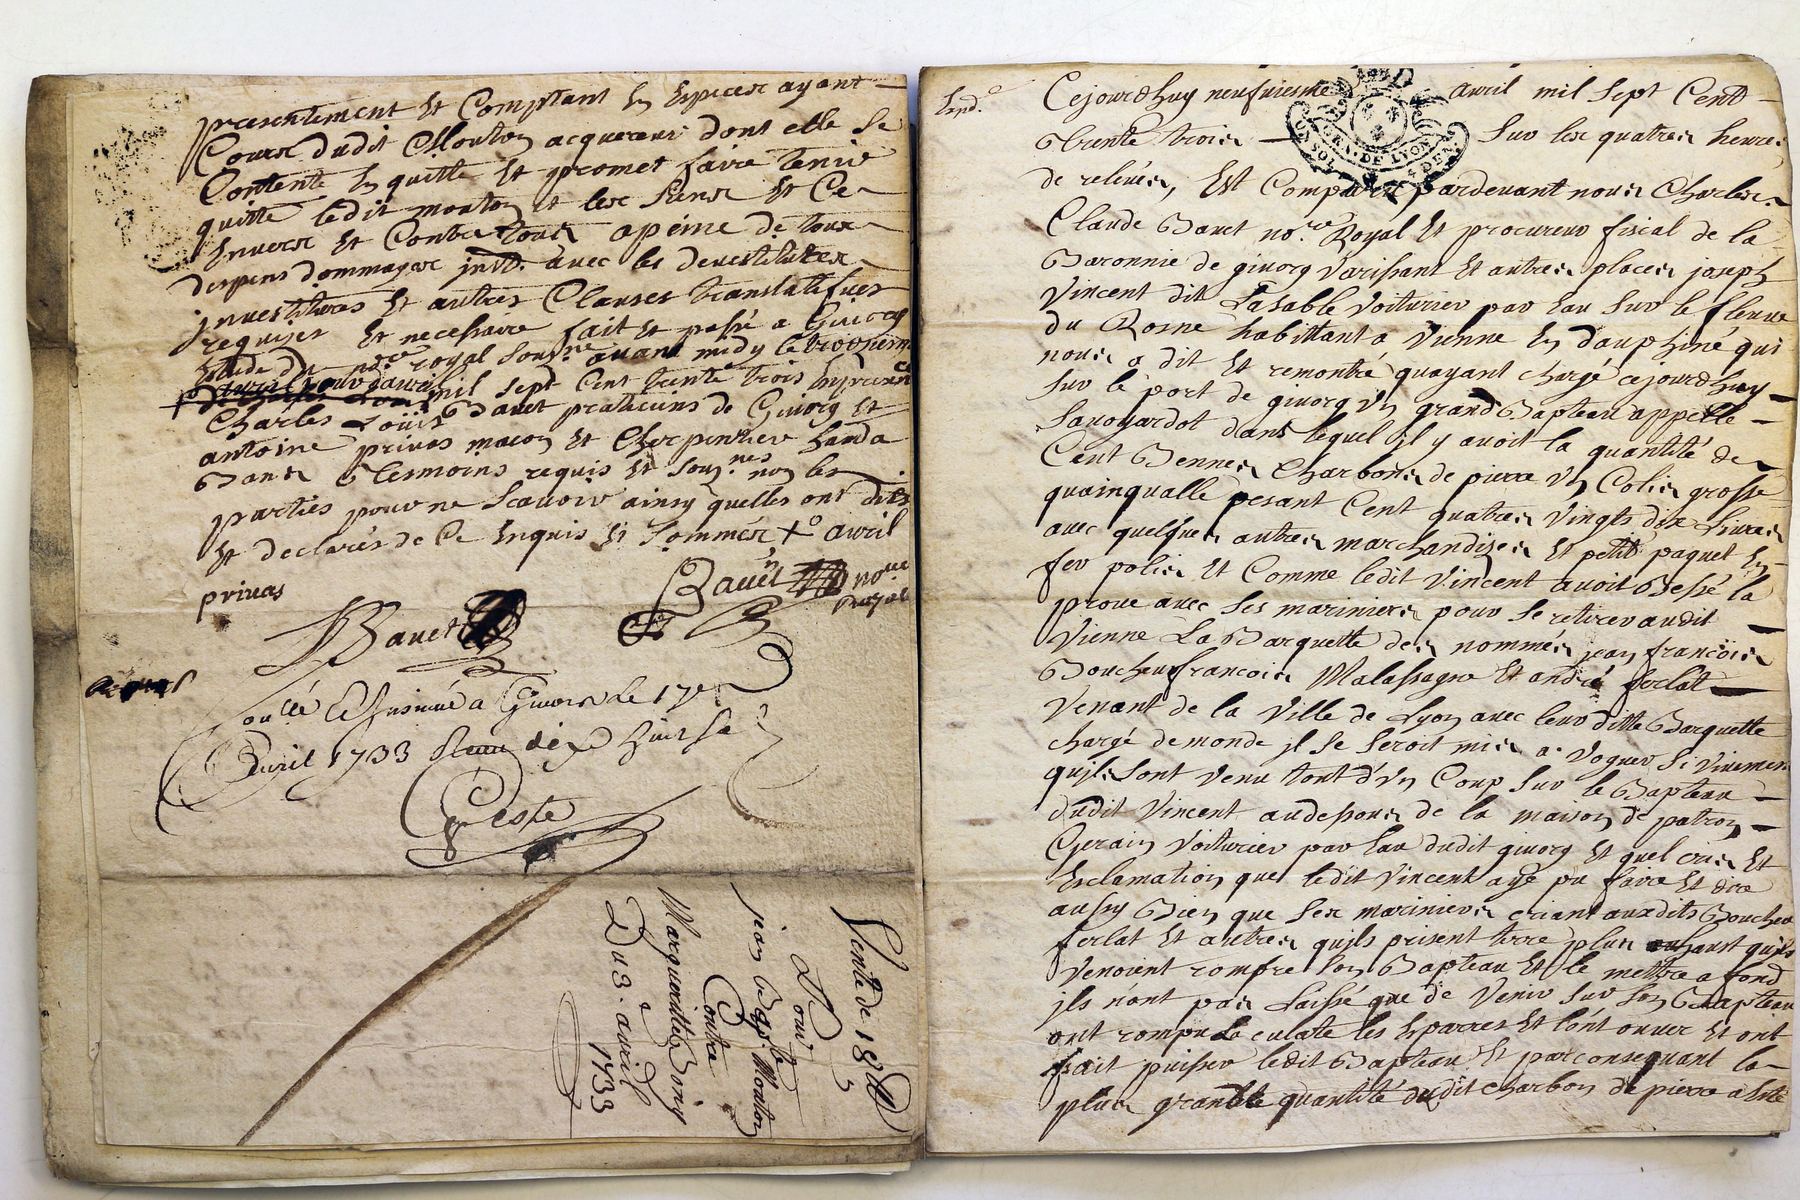 presentement Et Comptant En Especes ayant
Cours dudit Mouton acquereur dont elle Se
Contente En quitte Et promet faire tenir
quitte ledit mouton et les siens Et Ce
Envers Et Contre tous apeine de tous
despens dommages avec les devestitures
investitures Et autres Clauses translatifves
requises Et necessaire fait Et passé a Givorg
Etude du nore royal sousne avant midy le troisieme
mil sept Cent trente trois En presence
Charles Louis Bavet praticiens de Givorg Et
antoine privas macon Et Cherpentier
tesmoins requis Et sousnes non les
parties pour ne Scavoir ainsy quelles ont dit
Et declarés de Ce Enquis Et Sommés +o avril
privas
Bavet nore
Royal
Bavet
a Givors le 17e
avril 1733
Ceste
Vente de 18ll
Pour
jean Bapte Mouton
Contre
Margueritte
Du 3e avril
1733
Cejourdhuy neufviesme avril mil Sept Cent
trente trois Sur les quatres heures
GEN. DE LYON
de relévés, Est Comparu pardevant nous Charles
Claude Bavet nore Royal Et procureur fiscal de la
Baronnie de givorg Et autres places joseph
Vincent dit Lasable Voiturier par Eau Sur le fleuve
du Rosne habittant a Vienne En dauphiné qui
nous a dit Et remontré quayant chargé cejourdhuy
Sur le port de givorg Un grand Bapteau appellé
Savoyardot dans lequel il y avoit la quantité de
Cent Bennes Charbons de pierre Un Colis grosse
quainqualle pesant Cent quatres Vingts dix Livres
avec quelques autres marchandizes Et petit paquet En
fer polis Et Comme ledit Vincent avoit la
proue avec Ses mariniers pour Se retirer audit
Vienne La Barquette des nommés jean françois
Boucheu francois Malassagne Et andré ferlat
Venant de la Ville de Lyon avec leur ditte Barquette
chargé de monde jl Se Seroit mis a Voguer Si Vivement
quils Sont Venu tout d'Un Coup Sur le Bapteau
dudit Vincent audessous de la maison de patron
Voiturier par Eau dudit givorg Et quel cris Et
Exclamation que ledit Vincent aye pu faire Et dire
aussy Bien que Ses mariniers criant auxdits Boucheu
ferlat Et autres quils prisent terre plus Enhaut quils
Venoient rompre Son Bapteau Et le mettre a fond
jls n'ont pas Laissé que de Venir Sur Son Bapteau
ont rompu La culate les Eparres Et lont ouver Et ont
fait puiser ledit Bapteau Et parconsequant la
plus grande quantité dudit charbon de pierre a Esté